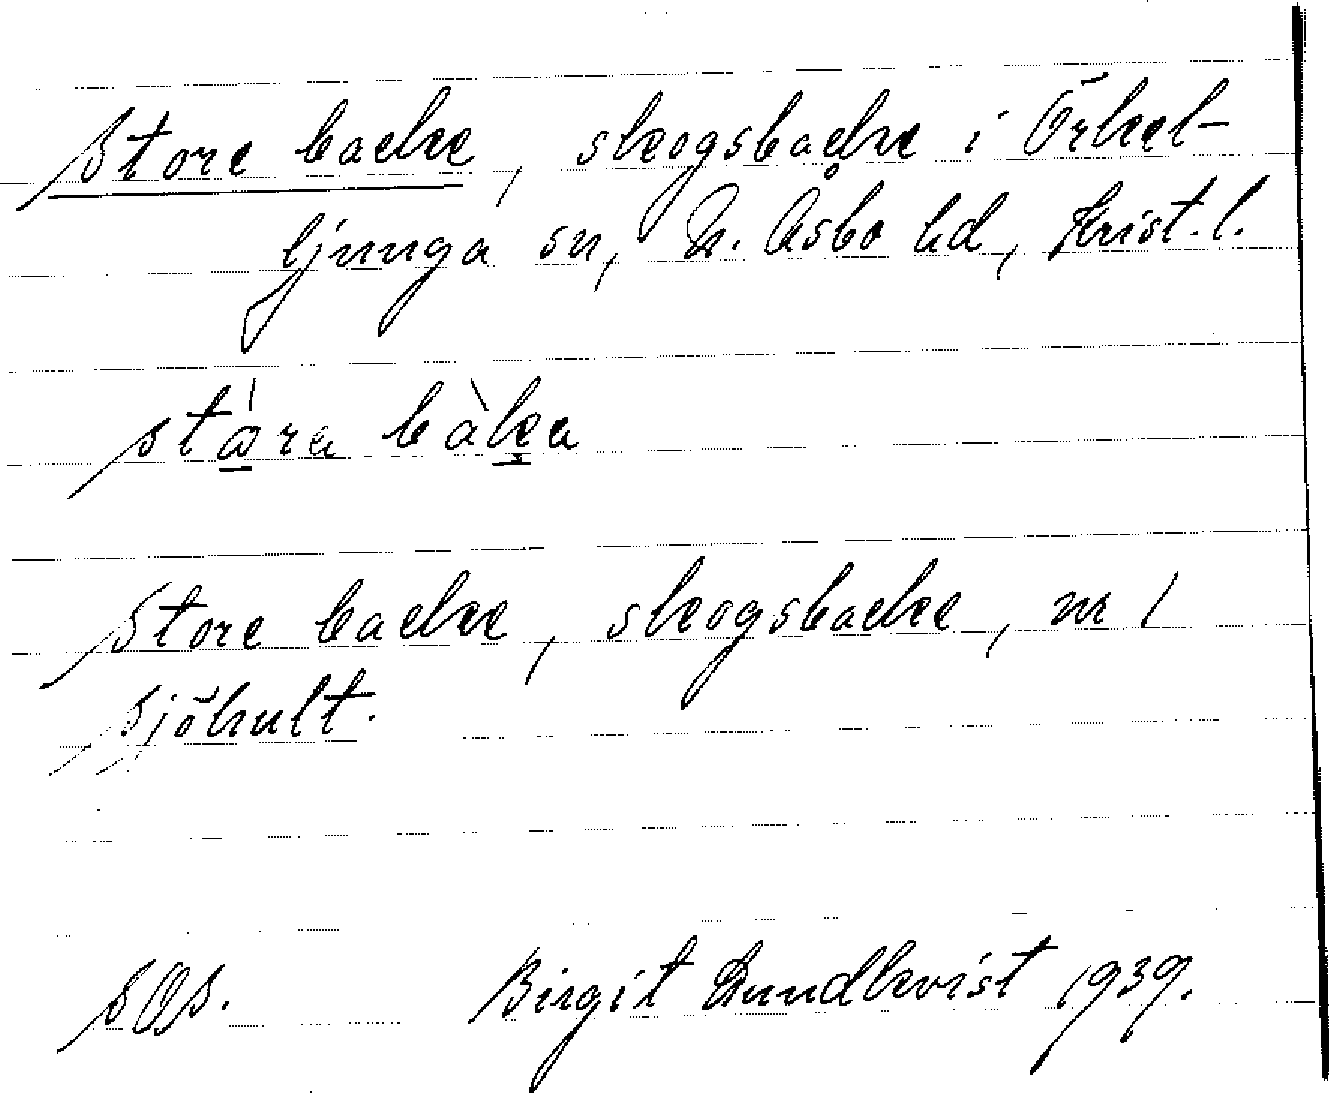 Store backe, skogsbacke i Örkel-
ljunga sn, N. Åsbo hd, Krist. l.
stàra bàka
Store backe, skogsbacke, nr 1
Sjöhult.
SOS. Birgit Lundkvist 1939.